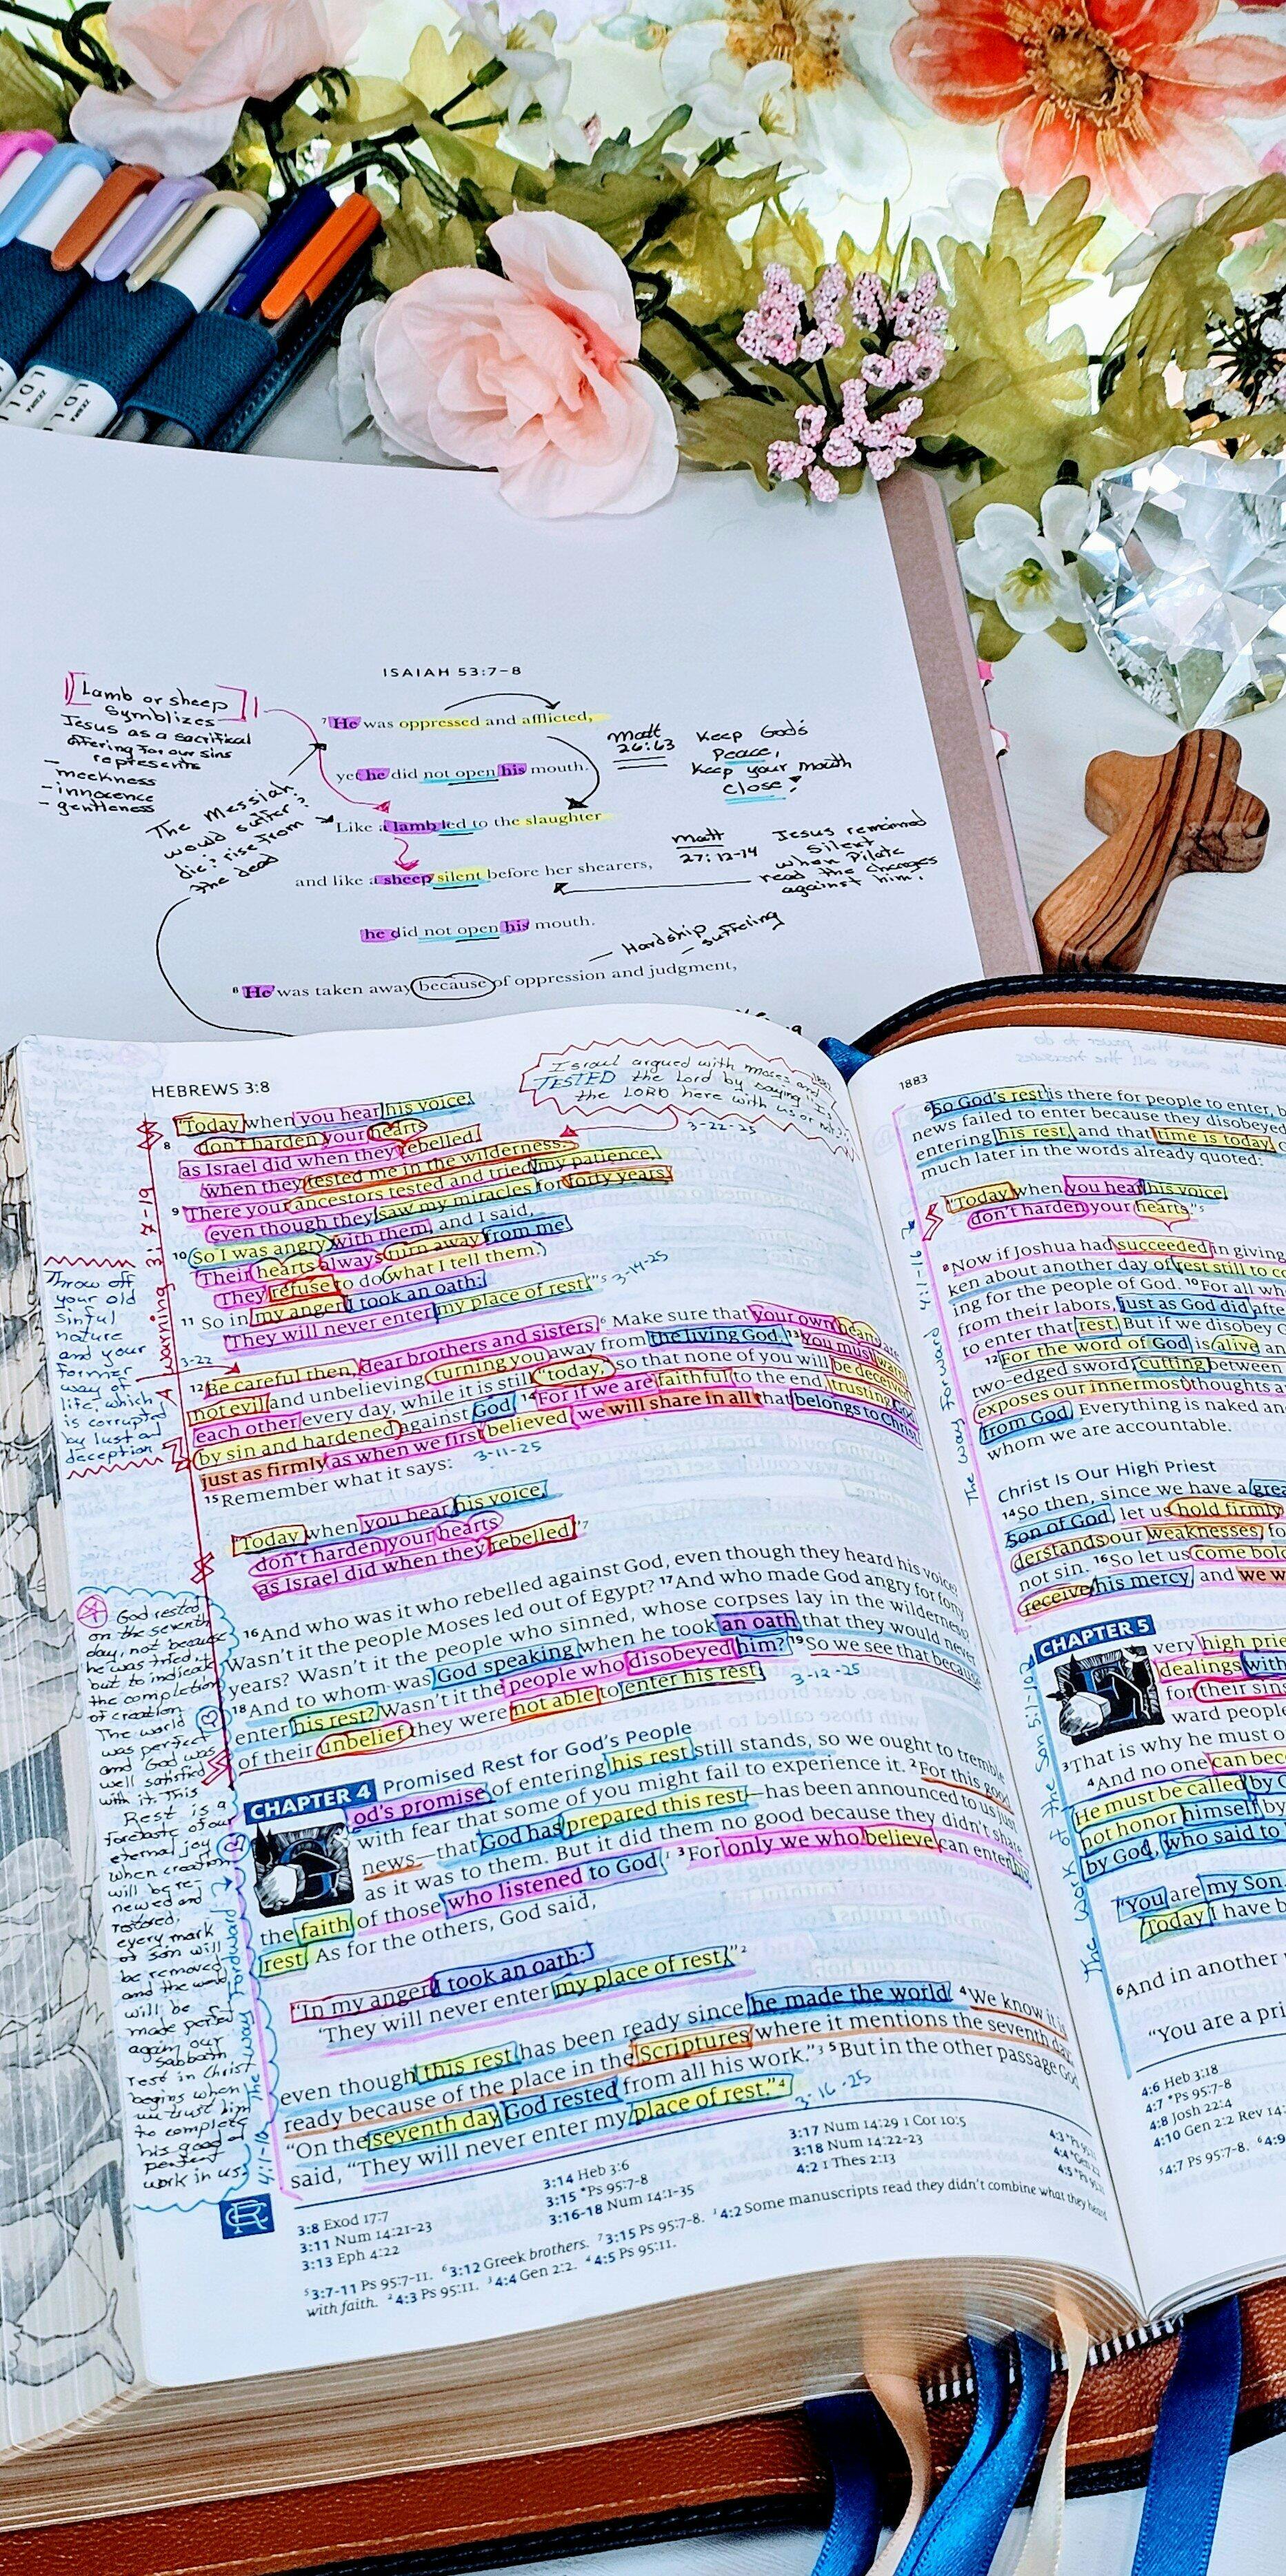 ZEBRA
ZEBRA
ISAIAH 53:7-8
Lamb or sheep
Symblizes
Jesus as a sacrifical
offering for our sins
represents
- meekness
- innocence
- gentleness
The Messiah
would suffer
die & rise from
the dead
7 He was oppressed and afflicted,
yet he did not open his mouth.
Like a lamb led to the slaughter
and like a sheep silent before her shearers,
he did not open his mouth.
8 He was taken away because of oppression and judgment,
Matt
26:63
Keep God's
Peace,
Keep your mouth
Close!
Matt
27:12-14
Jesus remained
Silent
when Pilate
read the charges
against him.
- Hardship
- suffering
HEBREWS 3:8
Israel argued with Moses and
TESTED the Lord by saying "Is
the LORD here with us or not?"
3-22-25
"Today when you hear his voice,
8 don't harden your hearts
as Israel did when they rebelled,
when they tested me in the wilderness.
9 There your ancestors tested and tried my patience,
even though they saw my miracles for forty years.
10 So I was angry with them, and I said,
'Their hearts always turn away from me.
They refuse to do what I tell them.'
11 So in my anger I took an oath:
'They will never enter my place of rest.'"5 3-14-25
A Warning 3:7-19
Throw off
your old
sinful
nature
and your
former
way of
life, which
is corrupted
by lust and
deception
3-22
12 Be careful then, dear brothers and sisters.6 Make sure that your own hearts are
not evil and unbelieving, turning you away from the living God. 13 You must warn
each other every day, while it is still "today," so that none of you will be deceived
by sin and hardened against God. 14 For if we are faithful to the end, trusting God
just as firmly as when we first believed, we will share in all that belongs to Christ.
15 Remember what it says: 3-11-25
"Today when you hear his voice,
don't harden your hearts
as Israel did when they rebelled."7
16 And who was it who rebelled against God, even though they heard his voice?
Wasn't it the people Moses led out of Egypt? 17 And who made God angry for forty
years? Wasn't it the people who sinned, whose corpses lay in the wilderness?
18 And to whom was God speaking when he took an oath that they would never
enter his rest? Wasn't it the people who disobeyed him? 19 So we see that because
of their unbelief they were not able to enter his rest. 3-12-25
God rested
on the seventh
day, not because
he was tried, it
but to indicate
the completion
of creation.
The world
was perfect
and God was
well satisfied
with it. This
Rest is a
foretaste of our
eternal joy
when creation
will be re-
newed and
restored,
every mark
of son will
be removed,
and the world
will be
made perfect
again our
Sabbath
rest in Christ
begins when
we trust him
to complete
his good &
perfect
work in us.
4:1-16 The way Fordward
Promised Rest for God's People
CHAPTER 4
od's promise of entering his rest still stands, so we ought to tremble
with fear that some of you might fail to experience it. 2 For this good
news—that God has prepared this rest—has been announced to us just
as it was to them. But it did them no good because they didn't share
the faith of those who listened to God.1 3 For only we who believe can enter his
rest. As for the others, God said,
"In my anger I took an oath:
'They will never enter my place of rest,'"2
even though this rest has been ready since he made the world. 4 We know it is
ready because of the place in the Scriptures where it mentions the seventh day:
"On the seventh day God rested from all his work."3 5 But in the other passage God
said, "They will never enter my place of rest."4 3-16-25
3:8 Exod 17:7
3:11 Num 14:21-23
3:13 Eph 4:22
3:14 Heb 3:6
3:15 *Ps 95:7-8
3:16-18 Num 14:1-35
3:17 Num 14:29 1 Cor 10:5
3:18 Num 14:22-23
4:2 1 Thes 2:13
4:3 *Ps 95:11
4:4 *Gen 2:2
4:5 *Ps 95:11
5 3:7-11 Ps 95:7-11. 6 3:12 Greek brothers. 7 3:15 Ps 95:7-8. 1 4:2 Some manuscripts read they didn't combine what they heard
with faith. 2 4:3 Ps 95:11. 3 4:4 Gen 2:2. 4 4:5 Ps 95:11.
1883
6 So God's rest is there for people to enter,
news failed to enter because they disobeyed
entering his rest, and that time is today.
much later in the words already quoted:
"Today when you hear his voice,
don't harden your hearts."5
The way Forward 4:1-16
8 Now if Joshua had succeeded in giving
ken about another day of rest still to c
ing for the people of God. 10 For all wh
from their labors, just as God did after
to enter that rest. But if we disobey
12 For the word of God is alive an
two-edged sword, cutting between
exposes our innermost thoughts a
from God. Everything is naked and
whom we are accountable.
Christ Is Our High Priest
14 So then, since we have a grea
Son of God, let us hold firmly
derstands our weaknesses, fo
not sin. 16 So let us come bold
receive his mercy, and we w
The work of the Son 5:1-10
CHAPTER 5
very high prie
dealings with
for their sins
ward people
3 That is why he must o
4 And no one can bec
He must be called by G
not honor himself by
by God, who said to
"You are my Son.
Today I have b
6 And in another
"You are a pri
4:6 Heb 3:18
4:7 *Ps 95:7-8
4:8 Josh 22:4
4:10 Gen 2:2 Rev 14:
5 4:7 Ps 95:7-8. 6 4:9